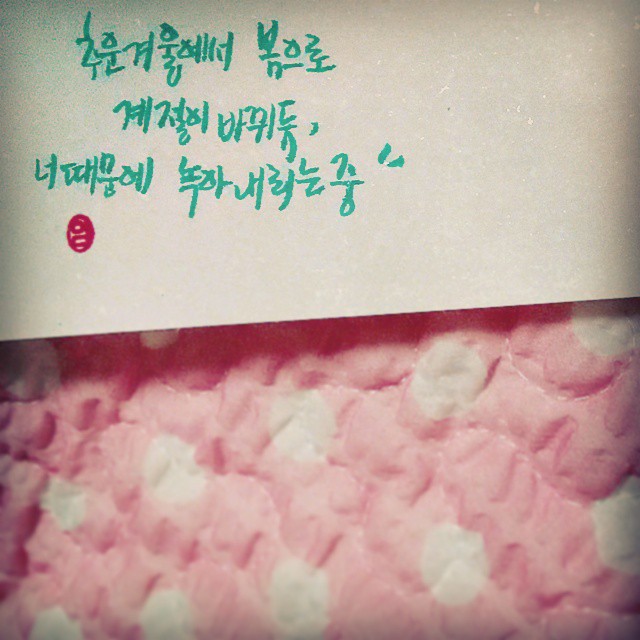 추운겨울에서 봄으로
계절이 바뀌듯,
너때문에 녹아내리는중^^